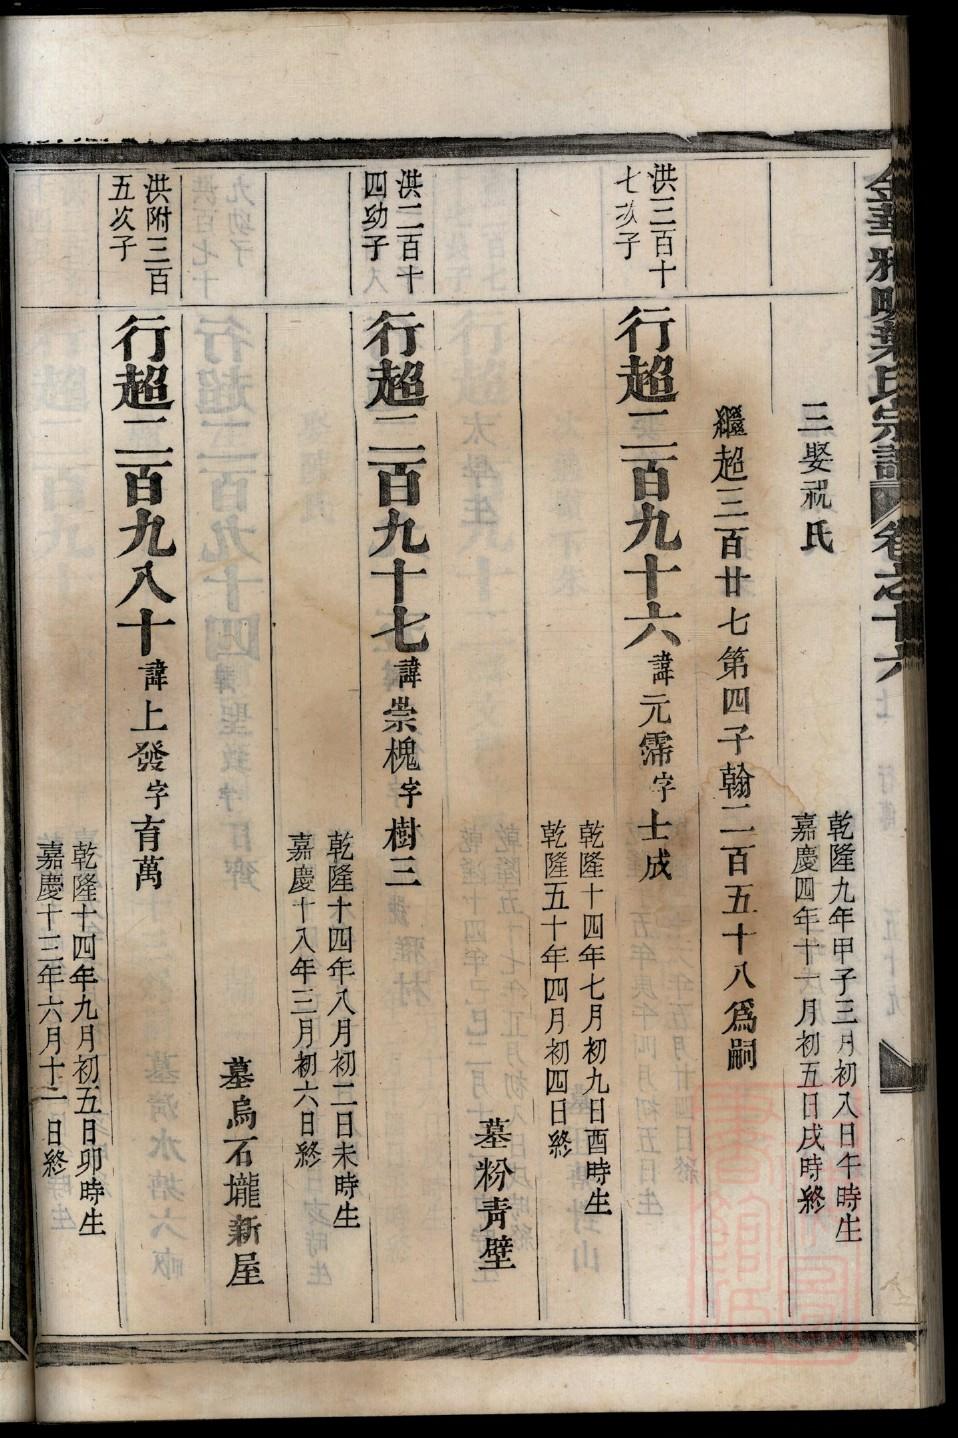 金華雅畈葉氏宗譜 卷之十六
三娶祝氏
乾隆九年甲子三月初八日午時生
嘉慶四年十一月初五日戌時終
繼超三百廿七第四子翰二百五十八爲嗣
洪三百十
七次子
行超二百九十六諱元霈字士成
乾隆十四年七月初九日酉時生
乾隆五十年四月初四日終
墓粉青壁
洪二百十
四幼子
行超二百九十七諱崇槐字樹三
乾隆十四年八月初二日未時生
嘉慶十八年三月初六日終
墓烏石壠新屋
洪附三百
五次子
行超二百九八十諱上發字有萬
乾隆十四年九月初五日卯時生
嘉慶十三年六月十二日終